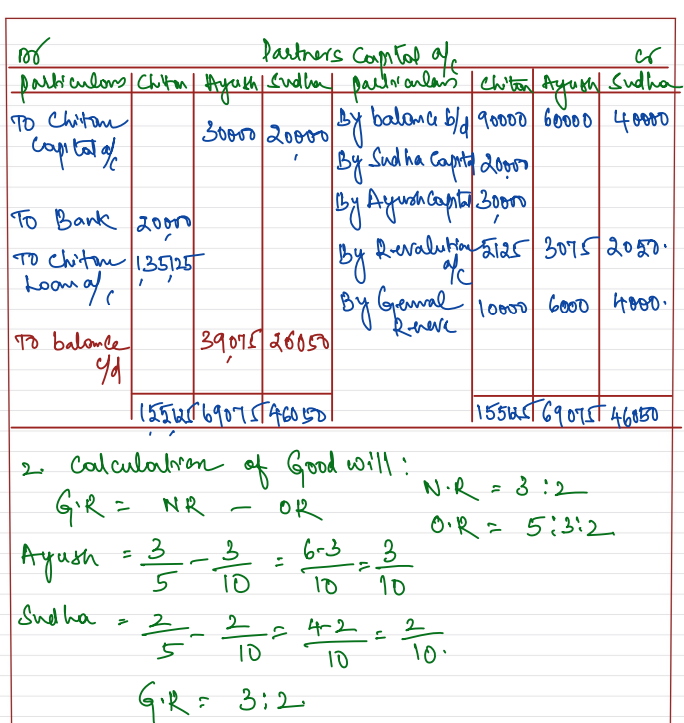 Dr Partners Capital a/c Cr
Particulars Chitan Ayush Sudha Particulars Chitan Ayush Sudha
To Chitan Capital a/c 30000 20000 By balance b/d 90000 60000 40000
By Sudha Capital 20000
By Ayush Capital 30000
To Bank 20000
To Chitan Loan a/c 135125 By Revalution a/c 5125 3075 2050.
By General Reserve 10000 6000 4000.
To balance c/d 39075 26050
155125 69075 46050 155125 69075 46050
2. Calculation of Good will:
G.R = NR - OR N.R = 3:2
O.R = 5:3:2
Ayush = 3/5 - 3/10 = 6-3/10 = 3/10
Sudha = 2/5 - 2/10 = 4-2/10 = 2/10.
G.R = 3:2